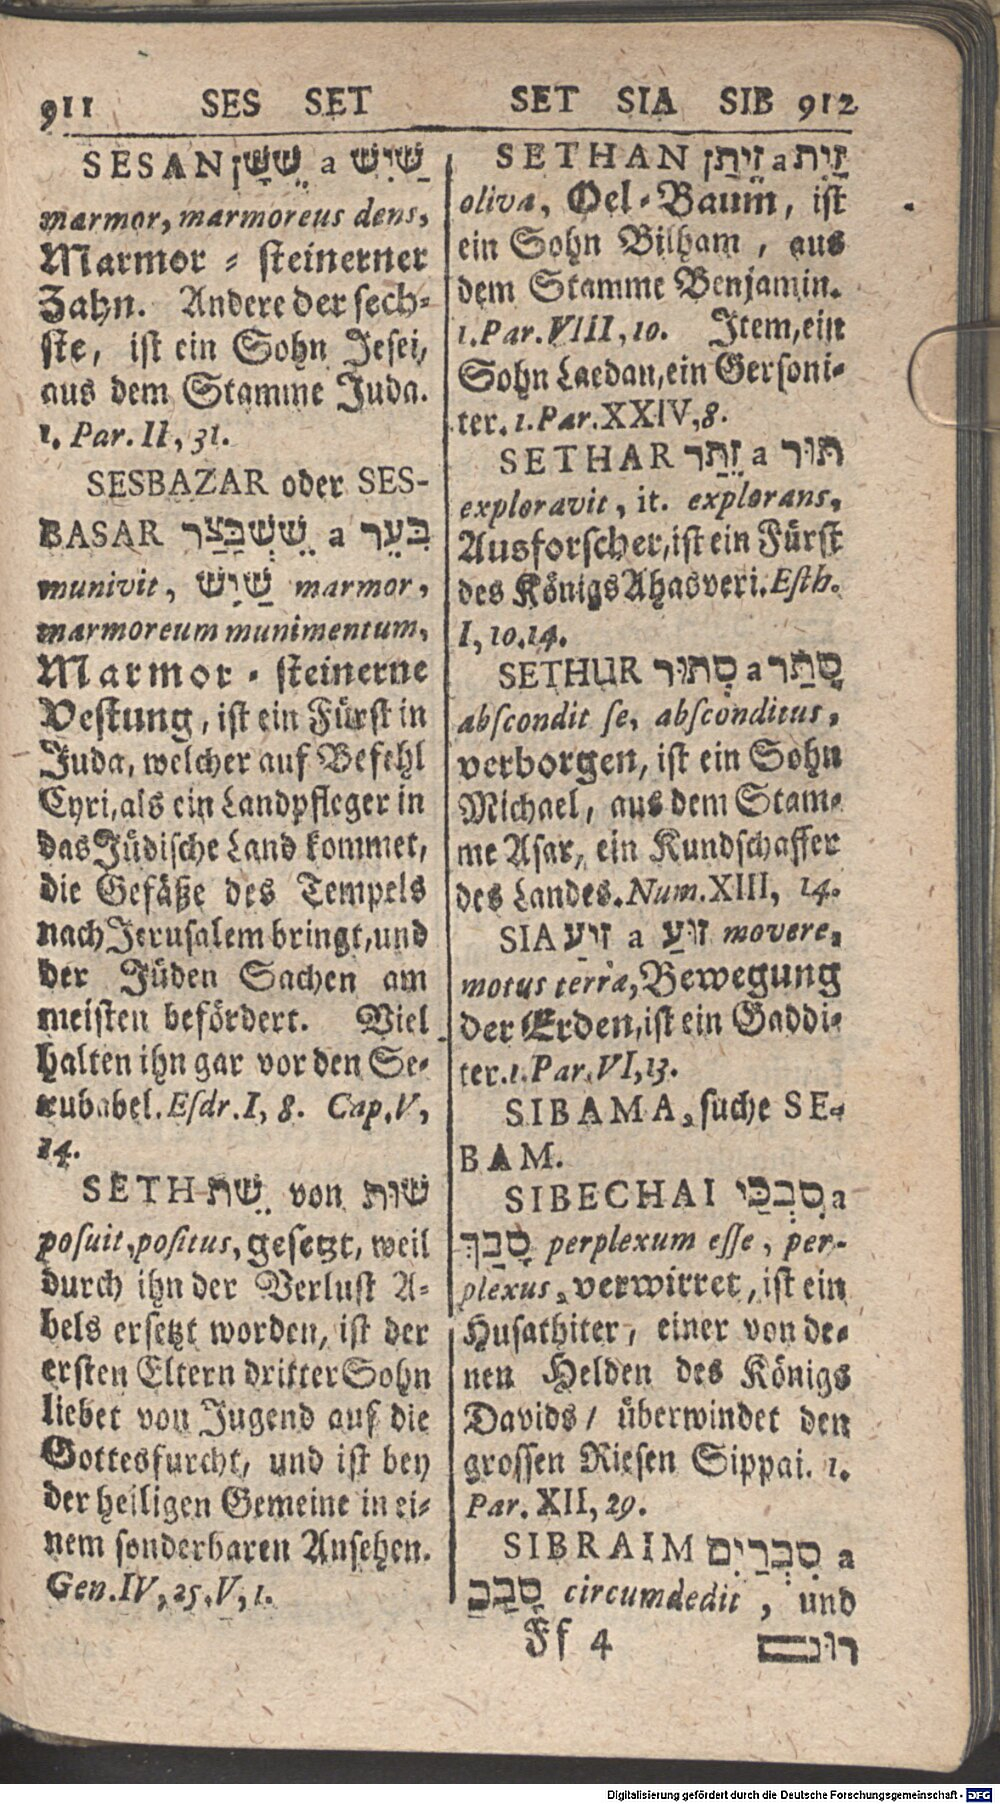 911 SES SET
SESAN שֵׁשָׁן a שַׁיִשׁ
marmor, marmoreus dens,
Marmor - steinerner
Zahn. Andere der sech-
ste, ist ein Sohn Jesei,
aus dem Stamme Juda.
1. Par. II, 31.
SESBAZAR oder SES-
BASAR שֵׁשְׁבַּצַּר a בִּצֵּר
munivit, שַׁיִשׁ marmor,
marmoreum munimentum,
Marmor - steinerne
Vestung, ist ein Fürst in
Juda, welcher auf Befehl
Cyri, als ein Landpfleger in
das Jüdische Land kommet,
die Gefäße des Tempels
nach Jerusalem bringt, und
der Jüden Sachen am
meisten befördert. Viel
halten ihn gar vor den Se-
rubabel. Esdr. I, 8. Cap. V,
14.
SETH שֵׁת von שׁוּת
posuit, positus, gesetzt, weil
durch ihn der Verlust A-
bels ersetzt worden, ist der
ersten Eltern dritter Sohn
liebet von Jugend auf die
Gottesfurcht, und ist bey
der heiligen Gemeine in ei-
nem sonderbaren Ansehen.
Gen. IV, 25. V, 1.
SET SIA SIB 912
SETHAN זֵיתַן a זַיִת
oliva, Oel-Baum, ist
ein Sohn Bilham, aus
dem Stamme Benjamin.
1. Par. VIII, 10. Item, ein
Sohn Laedan, ein Gersoni-
ter. 1. Par. XXIV, 8.
SETHAR זֵתַר a תּוּר
exploravit, it. explorans,
Ausforscher, ist ein Fürst
des Königs Ahasveri. Esth.
I, 10. 14.
SETHUR סְתוּר a סָתַר
abscondit se, absconditus,
verborgen, ist ein Sohn
Michael, aus dem Stam-
me Asar, ein Kundschaffer
des Landes. Num. XIII, 14.
SIA זִיעַ a זוּעַ movere,
motus terræ, Bewegung
der Erden, ist ein Gaddi-
ter. 1. Par. VI, 13.
SIBAMA, suche SE-
BAM.
SIBECHAI סִבְּכַי a
סָבַךְ perplexum esse, per-
plexus, verwirret, ist ein
Husathiter, einer von de-
nen Helden des Königs
Davids / überwindet den
grossen Riesen Sippai. 1.
Par. XII, 29.
SIBRAIM סִבְרַיִם a
סָבַב circumdedit, und
Ff 4
Digitalisierung gefördert durch die Deutsche Forschungsgemeinschaft - DFG